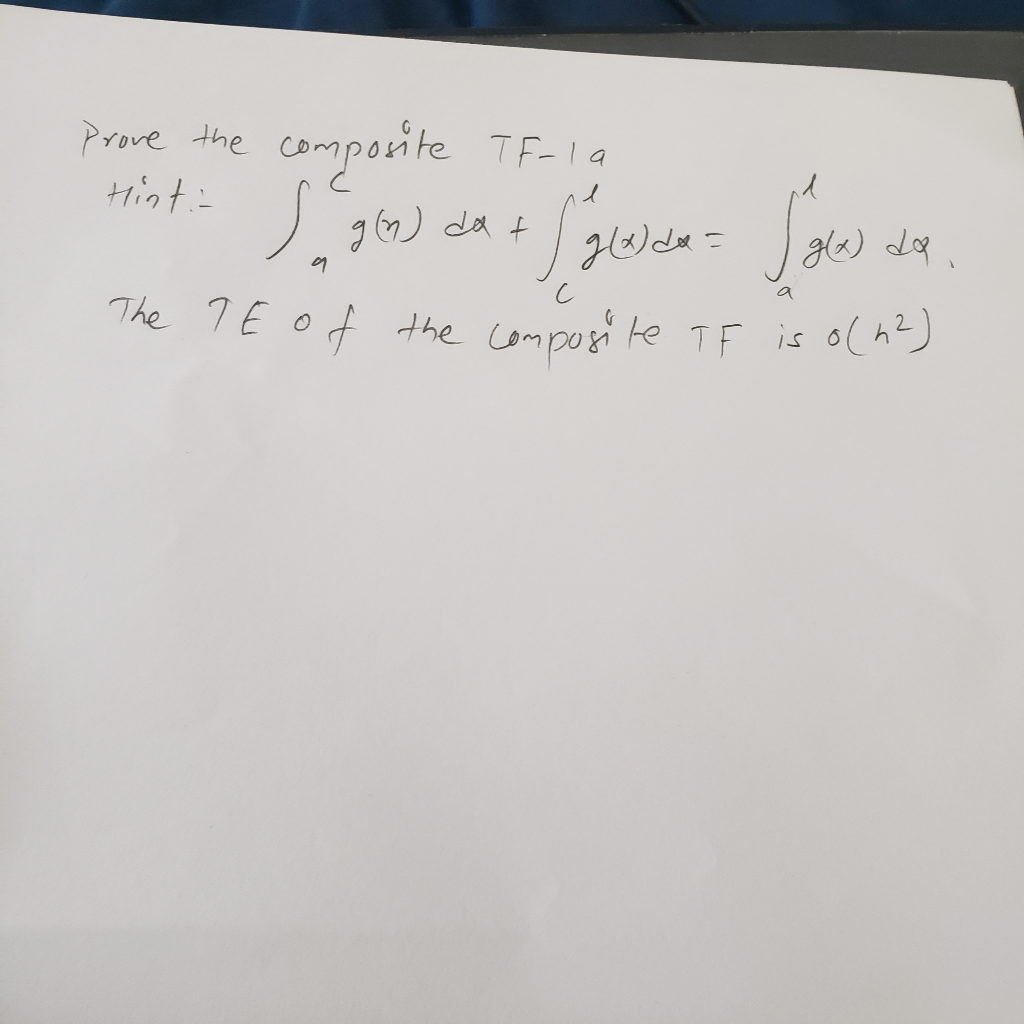 Prove the composite TF-1a
Hint:- ∫_a^c g(x) dx + ∫_c^l g(x) dx = ∫_a^l g(x) dx.
The TE of the composite TF is o(h²)